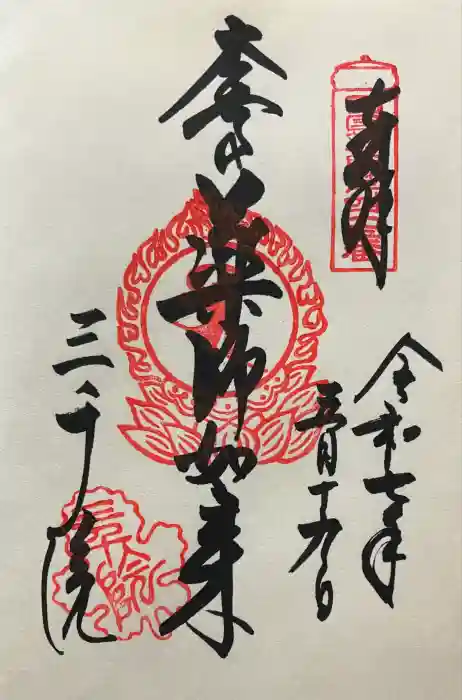 奉拝
令和七年
五月十九日
薬師如来
三千院